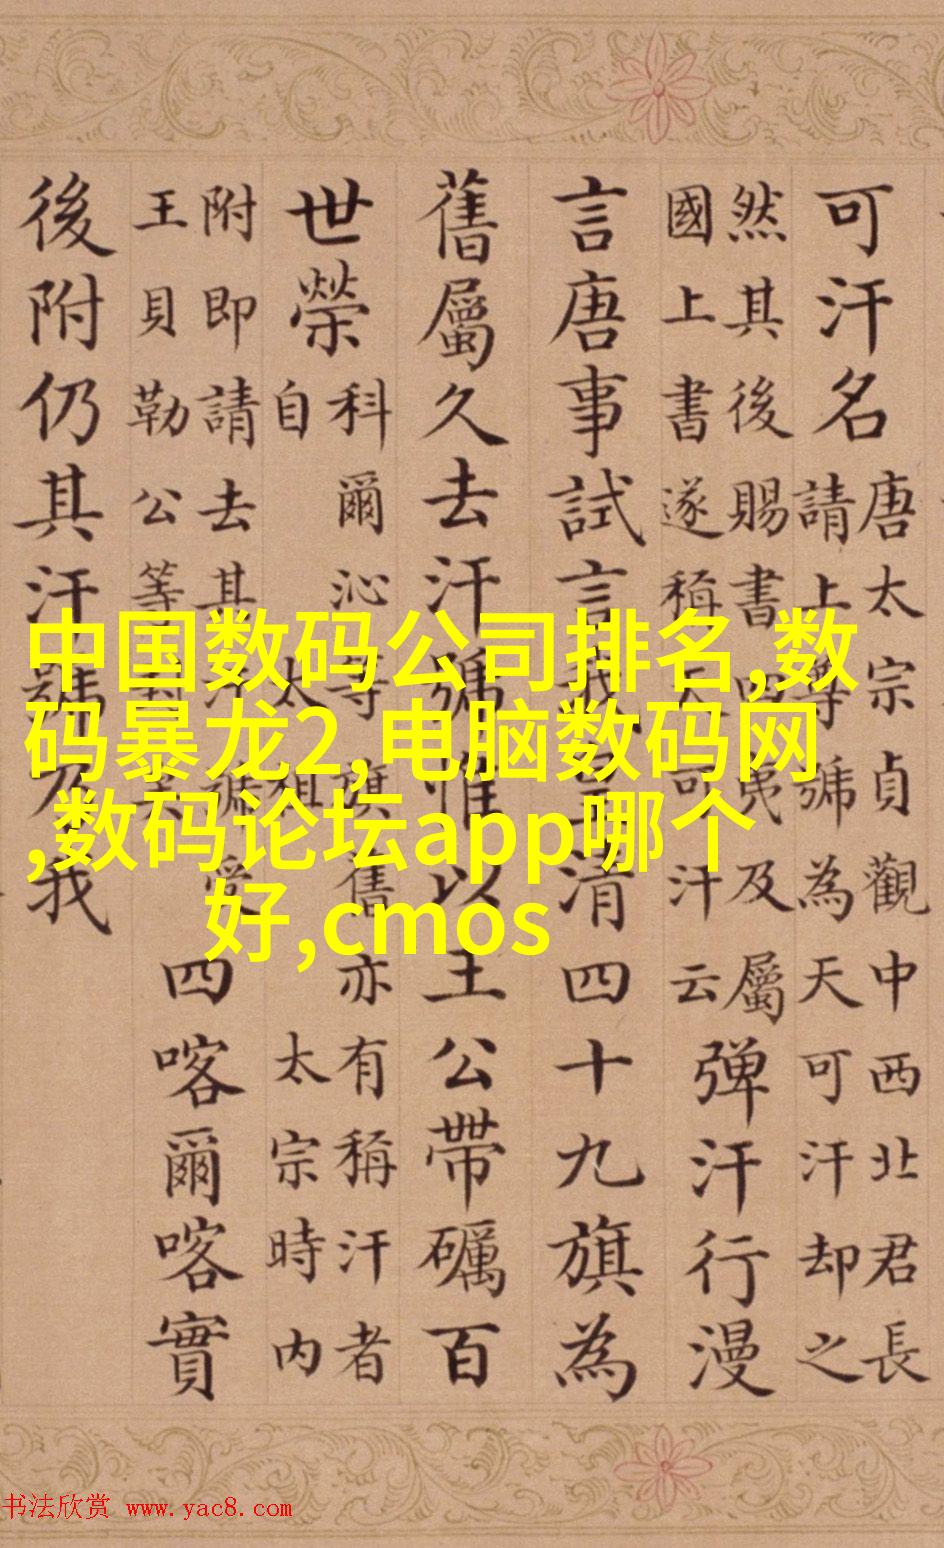 可汗名
唐太宗貞觀中西北君長
請上尊號為天可汗却之
然其後賜書四夷及屬
國上書遂稱天可汗云
弹汗行漫
言唐事試言我皇清四十九旗為
舊屬久去汗號惟以王公帶礪百
世榮
科爾沁等旗舊亦有稱汗者
自太祖太宗時内
附即請去其汗號受
王貝勒公等
四喀爾喀實
後附仍其汗號乃我
中国数码公司排名,数
码暴龙2,电脑数码网
,数码论坛app哪个
好,cmos
书法欣赏 www.yac8.com